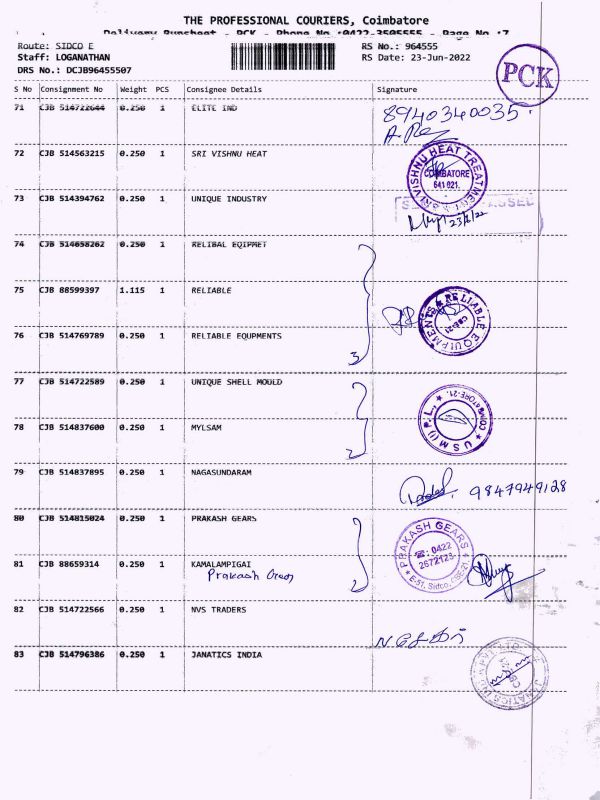 THE PROFESSIONAL COURIERS, Coimbatore
Delivery Runsheet - PCK - Phone No :0422-3505555 - Page No :7
Route: SIDCO E RS No.: 964555
Staff: LOGANATHAN RS Date: 23-Jun-2022
DRS No.: DCJB96455507
PCK
S No Consignment No Weight PCS Consignee Details Signature
71 CJB 514722644 0.250 1 ELITE IND 8940340035
72 CJB 514563215 0.250 1 SRI VISHNU HEAT
SRI VISHNU HEAT TREATMENT
COIMBATORE
641 021.
73 CJB 514394762 0.250 1 UNIQUE INDUSTRY
74 CJB 514658262 0.250 1 RELIBAL EQIPMET
75 CJB 88599397 1.115 1 RELIABLE
RELIABLE EQUIPMENTS
CBE-21
76 CJB 514769789 0.250 1 RELIABLE EQUPMENTS
3
77 CJB 514722589 0.250 1 UNIQUE SHELL MOULD
U S M (I) P. L.,
COIMBATORE-21.
78 CJB 514837600 0.250 1 MYLSAM
2
79 CJB 514837895 0.250 1 NAGASUNDARAM 9847949128
80 CJB 514815024 0.250 1 PRAKASH GEARS
PRAKASH GEARS
☎: 0422
2672123
E-57, Sidco, CBE-21.
81 CJB 88659314 0.250 1 KAMALAMPIGAI
Prakash Gears
2
82 CJB 514722566 0.250 1 NVS TRADERS
83 CJB 514796386 0.250 1 JANATICS INDIA